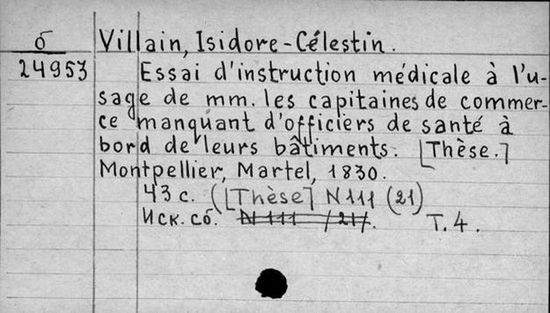 б
24953
Villain, Isidore-Célestin.
Essai d'instruction médicale à l'u-
sage de mm. les capitaines de commer-
ce manquant d'officiers de santé à
bord de leurs bâtiments. [Thèse.]
Montpellier, Martel, 1830.
43 с. ([Thèse] N 111 (21)
Иск. сб. N 111 /21/. Т. 4.